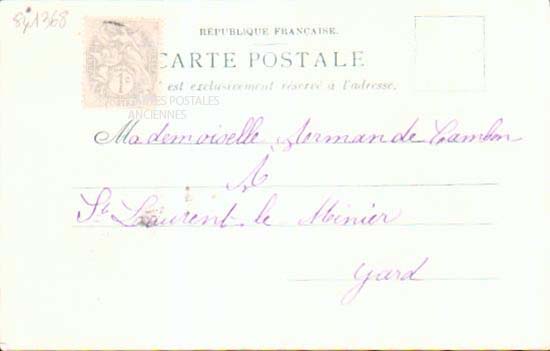 841368
RÉPUBLIQUE FRANÇAISE.
CARTE POSTALE
est exclusivement réservé à l'adresse.
1c
POSTES
CARTES POSTALES
ANCIENNES
Mademoiselle Normande Cambon
A
St Laurent le Minier
Gard